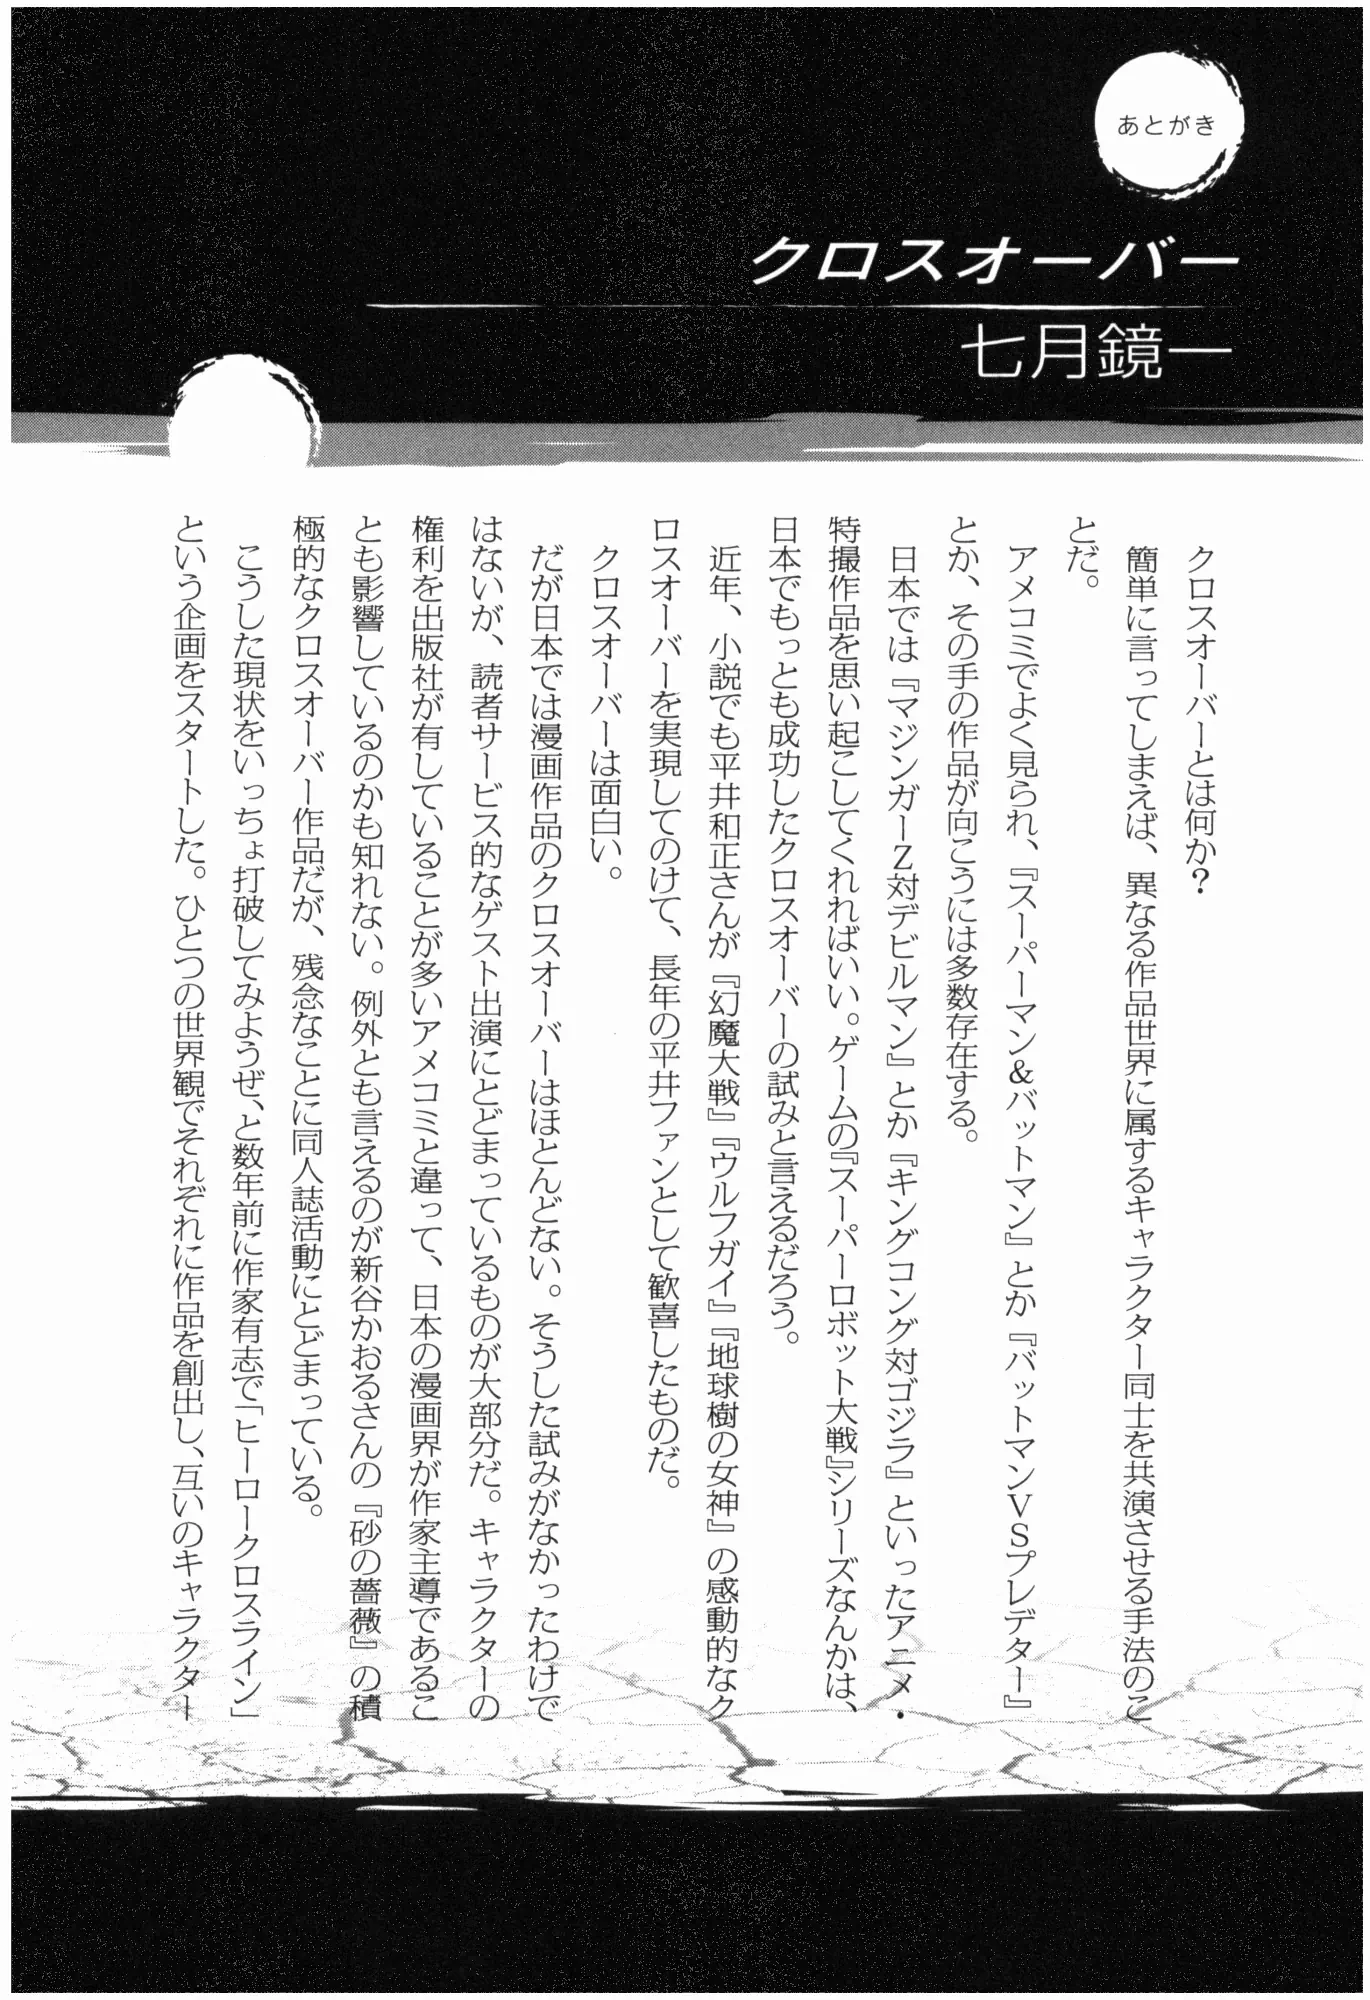 あとがき
クロスオーバー
七月鏡一
クロスオーバーとは何か？
簡単に言ってしまえば、異なる作品世界に属するキャラクター同士を共演させる手法のこ
とだ。
アメコミでよく見られ、『スーパーマン&バットマン』とか『バットマンVSプレデター』
とか、その手の作品が向こうには多数存在する。
日本では『マジンガーZ対デビルマン』とか『キングコング対ゴジラ』といったアニメ・
特撮作品を思い起こしてくれればいい。ゲームの『スーパーロボット大戦』シリーズなんかは、
日本でもっとも成功したクロスオーバーの試みと言えるだろう。
近年、小説でも平井和正さんが『幻魔大戦』『ウルフガイ』『地球樹の女神』の感動的なク
ロスオーバーを実現してのけて、長年の平井ファンとして歓喜したものだ。
クロスオーバーは面白い。
だが日本では漫画作品のクロスオーバーはほとんどない。そうした試みがなかったわけで
はないが、読者サービス的なゲスト出演にとどまっているものが大部分だ。キャラクターの
権利を出版社が有していることが多いアメコミと違って、日本の漫画界が作家主導であるこ
とも影響しているのかも知れない。例外とも言えるのが新谷かおるさんの『砂の薔薇』の積
極的なクロスオーバー作品だが、残念なことに同人誌活動にとどまっている。
こうした現状をいっちょ打破してみようぜ、と数年前に作家有志で「ヒーロークロスライン」
という企画をスタートした。ひとつの世界観でそれぞれに作品を創出し、互いのキャラクター